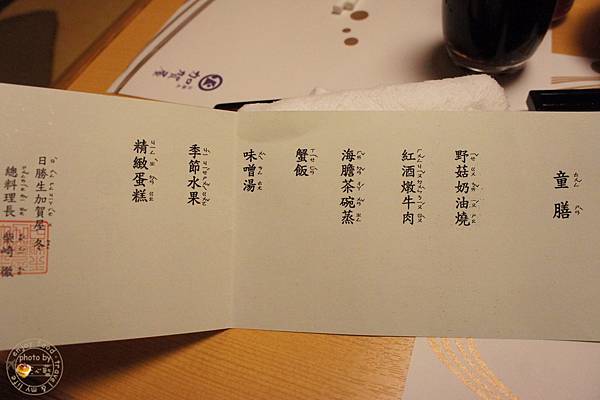 童膳
野菇奶油燒
紅酒燉牛肉
海膽茶碗蒸
蟹飯
味噌湯
季節水果
精緻蛋糕
日勝生加賀屋 冬
總料理長 柴崎 徹
加賀屋
enjoy food
photo by
travel & my life